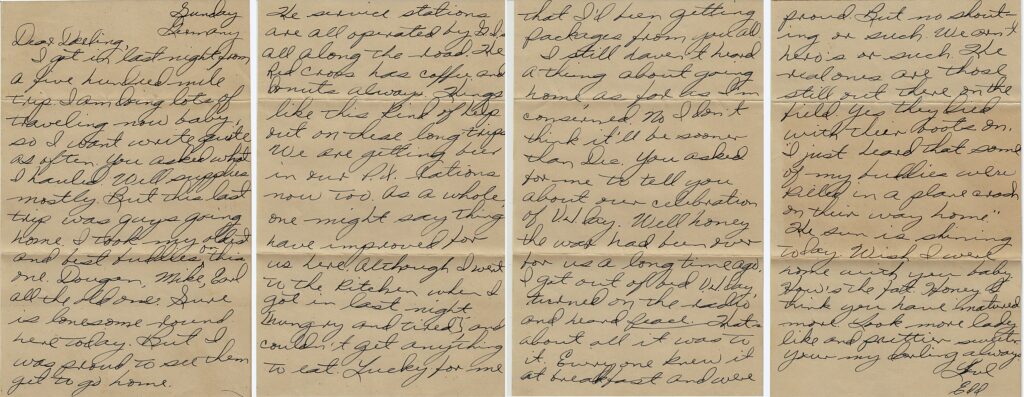 Sunday
Germany
Dear Darling
I got in last night from
a five hundred mile
trip. I am doing lots of
traveling now baby,
so I wont write quite
as often. You asked what
I hauled. Well, supplies
mostly. But this last
trip was guys going
home. I took my oldest
and best buddies on this
one. Dougan, Mike, Earl
all the old one. Sure
is lonesome round
here today. But I
was proud to see them
get to go home.
The service stations
are all operated by G.I.s
all along the road. The
Red Cross has coffee and
donuts always. Things
like this kind of help
out on these long trips
We are getting beer
in our P.X. rations
now too. As a whole
one might say things
have improved for
us here. Although I went
to the kitchen when I
got in last night
hungry and tired, and
couldn't get anything
to eat. Lucky for me
that I'd been getting
packages from you all
I still haven't heard
a thing about going
home as far as I'm
conserned. No I don't
think it'll be sooner
than Dec. You asked
for me to tell you
about our celebration
of VJ day. Well honey
the war had been over
for us a long time ago.
I got out of bed VJ day,
turned on the radio
and heard peace. Thats
about all it was to
it. Everyone knew it
at breakfast and were
proud. But no shout-
ing or such. We arn't
hero's or such. The
real ones are those
still out there on the
field. Yes they died
with their boots on.
"I just heard that some
of my buddies were
killed in a plane crash
on their way home."
The sun is shining
today. Wish I were
home with you baby.
How's the fat. Honey I
think you have matured
more. Look more lady
like and prittier sweeter
Your my darling always
Love
Edd